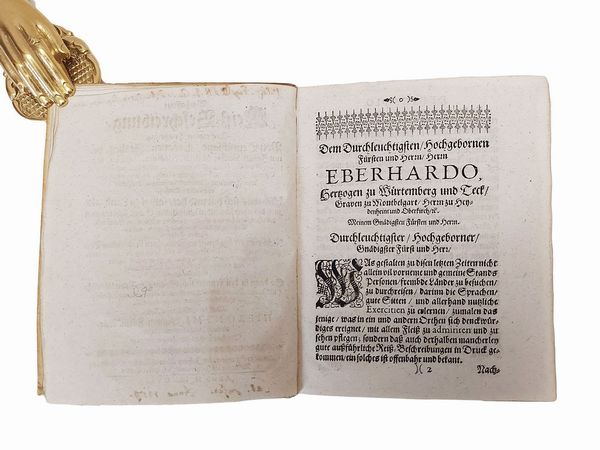 )( o )(
Dem Durchleuchtigsten / Hochgebornen
Fürsten und Herrn / Herrn
EBERHARDO,
Hertzogen zu Würtemberg und Teck /
Graven zu Montbelgart / Herrn zu Hey-
denheim und Oberkirch / ꝛc.
Meinem Gnädigsten Fürsten und Herrn.
Durchleuchtigster / Hochgeborner /
Gnädigster Fürst und Herr /
WAs gestalten zu disen letzten Zeiten nicht
allein vil vorneme und gemeine Stands
Personen / frembde Länder zu besuchen /
zu durchreisen / darinn die Sprachen /
gute Sitten / und allerhand nutzliche
Exercitien zu erlernen / zumalen das
jenige / was in ein und andern Orthen sich denckwür-
diges ereignet / mit allem Fleiß zu admiriren und zu
sehen pflegen; sondern daß auch derhalben mancherley
gute außführliche Reiß-Beschreibungen in Druck ge-
kommen / ein solches ist offenbahr und bekant.
)( 2
Nach-